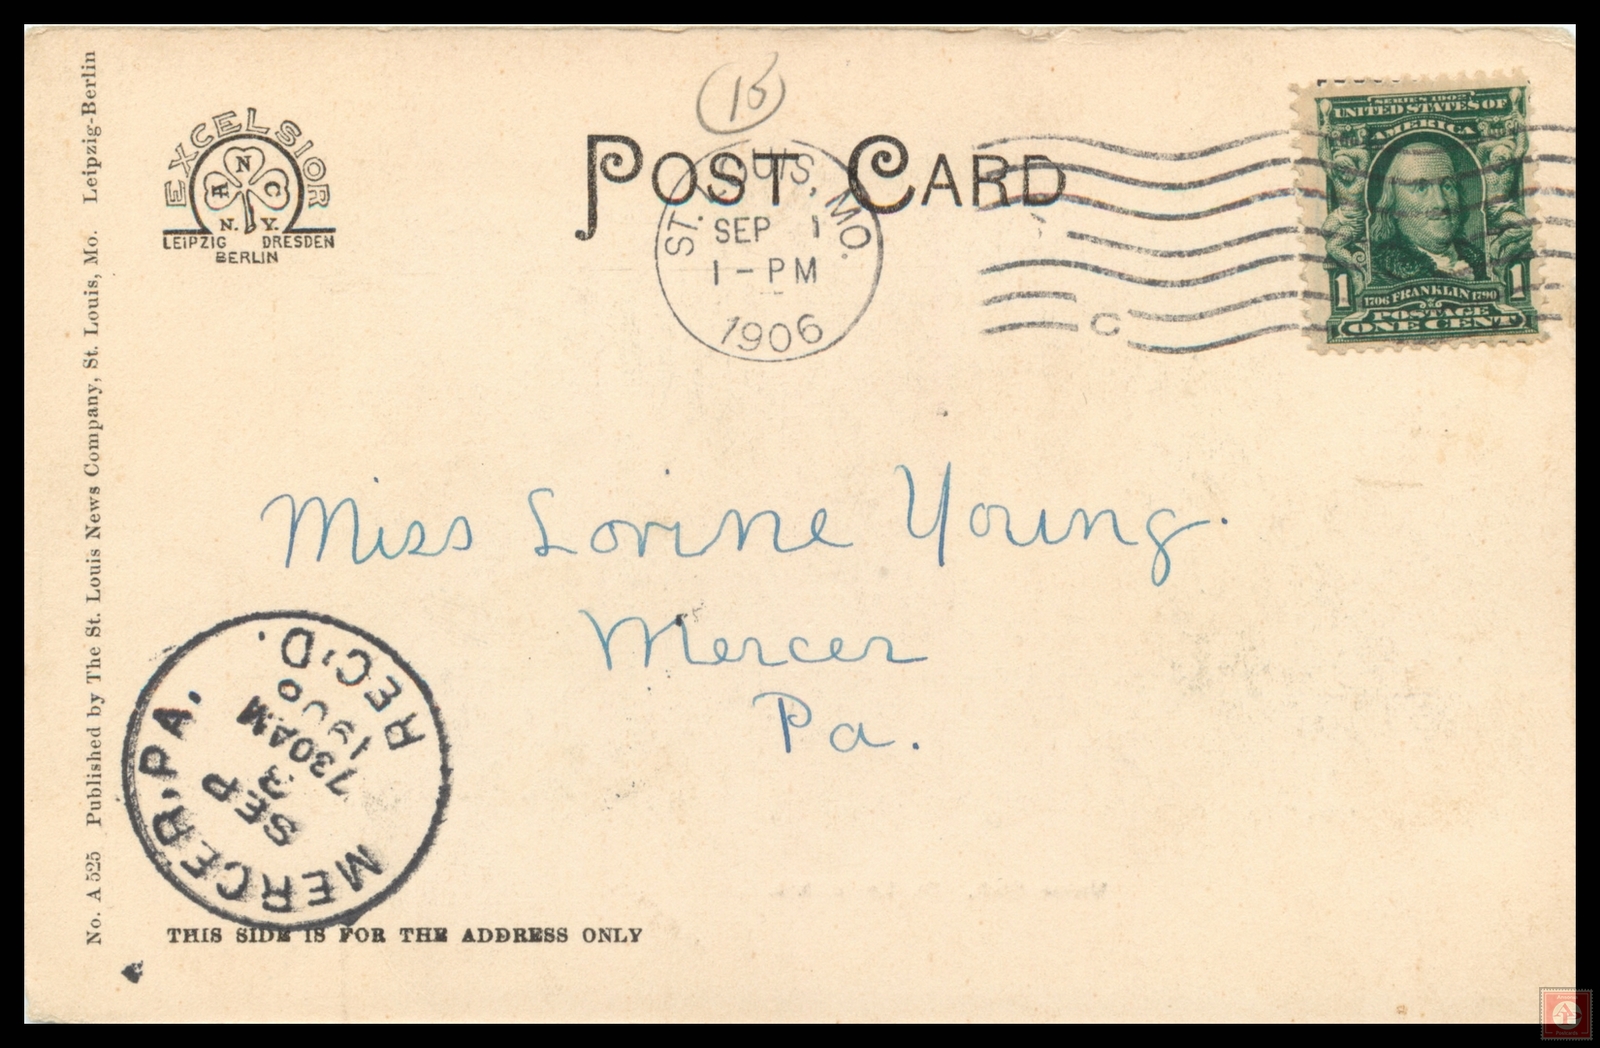 No. A 525 Published by The St. Louis News Company, St. Louis, Mo. Leipzig-Berlin
EXCELSIOR
A N C
N. Y.
LEIPZIG DRESDEN
BERLIN
15
POST CARD
ST. LOUIS, MO.
SEP 1
1-PM
1906
C
SERIES 1902
UNITED STATES OF
AMERICA
1 1
1706 FRANKLIN 1790
POSTAGE
ONE CENT
Miss Lorine Young.
Mercer
Pa.
MERCER, PA.
SEP
3
730AM
REC'D.
THIS SIDE IS FOR THE ADDRESS ONLY